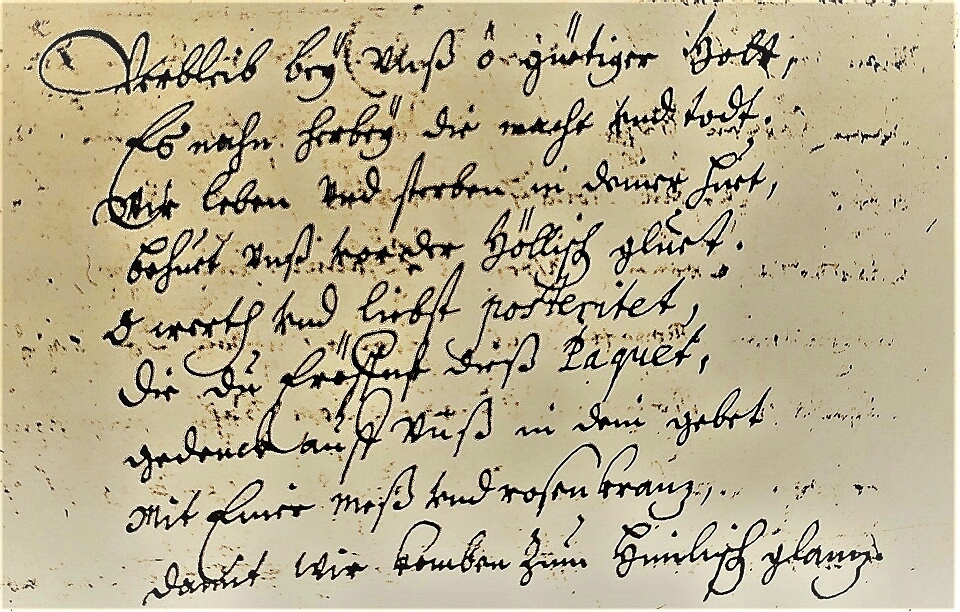 Verbleib beÿ Vnß ô güetiger Gott,
Es nahn herbeÿ die nacht vnd todt.
Wir leben vnd sterben in deiner Huet,
behüet vnß vor der Höllisch gluet.
O werth vnd liebst posteritet,
die du Eröffnest dieß Paquet,
gedenck auff Vnß in dein gebet
Mit Einer Meß vnd rosenkranz,
damit wir komben zum Himlisch glantz.